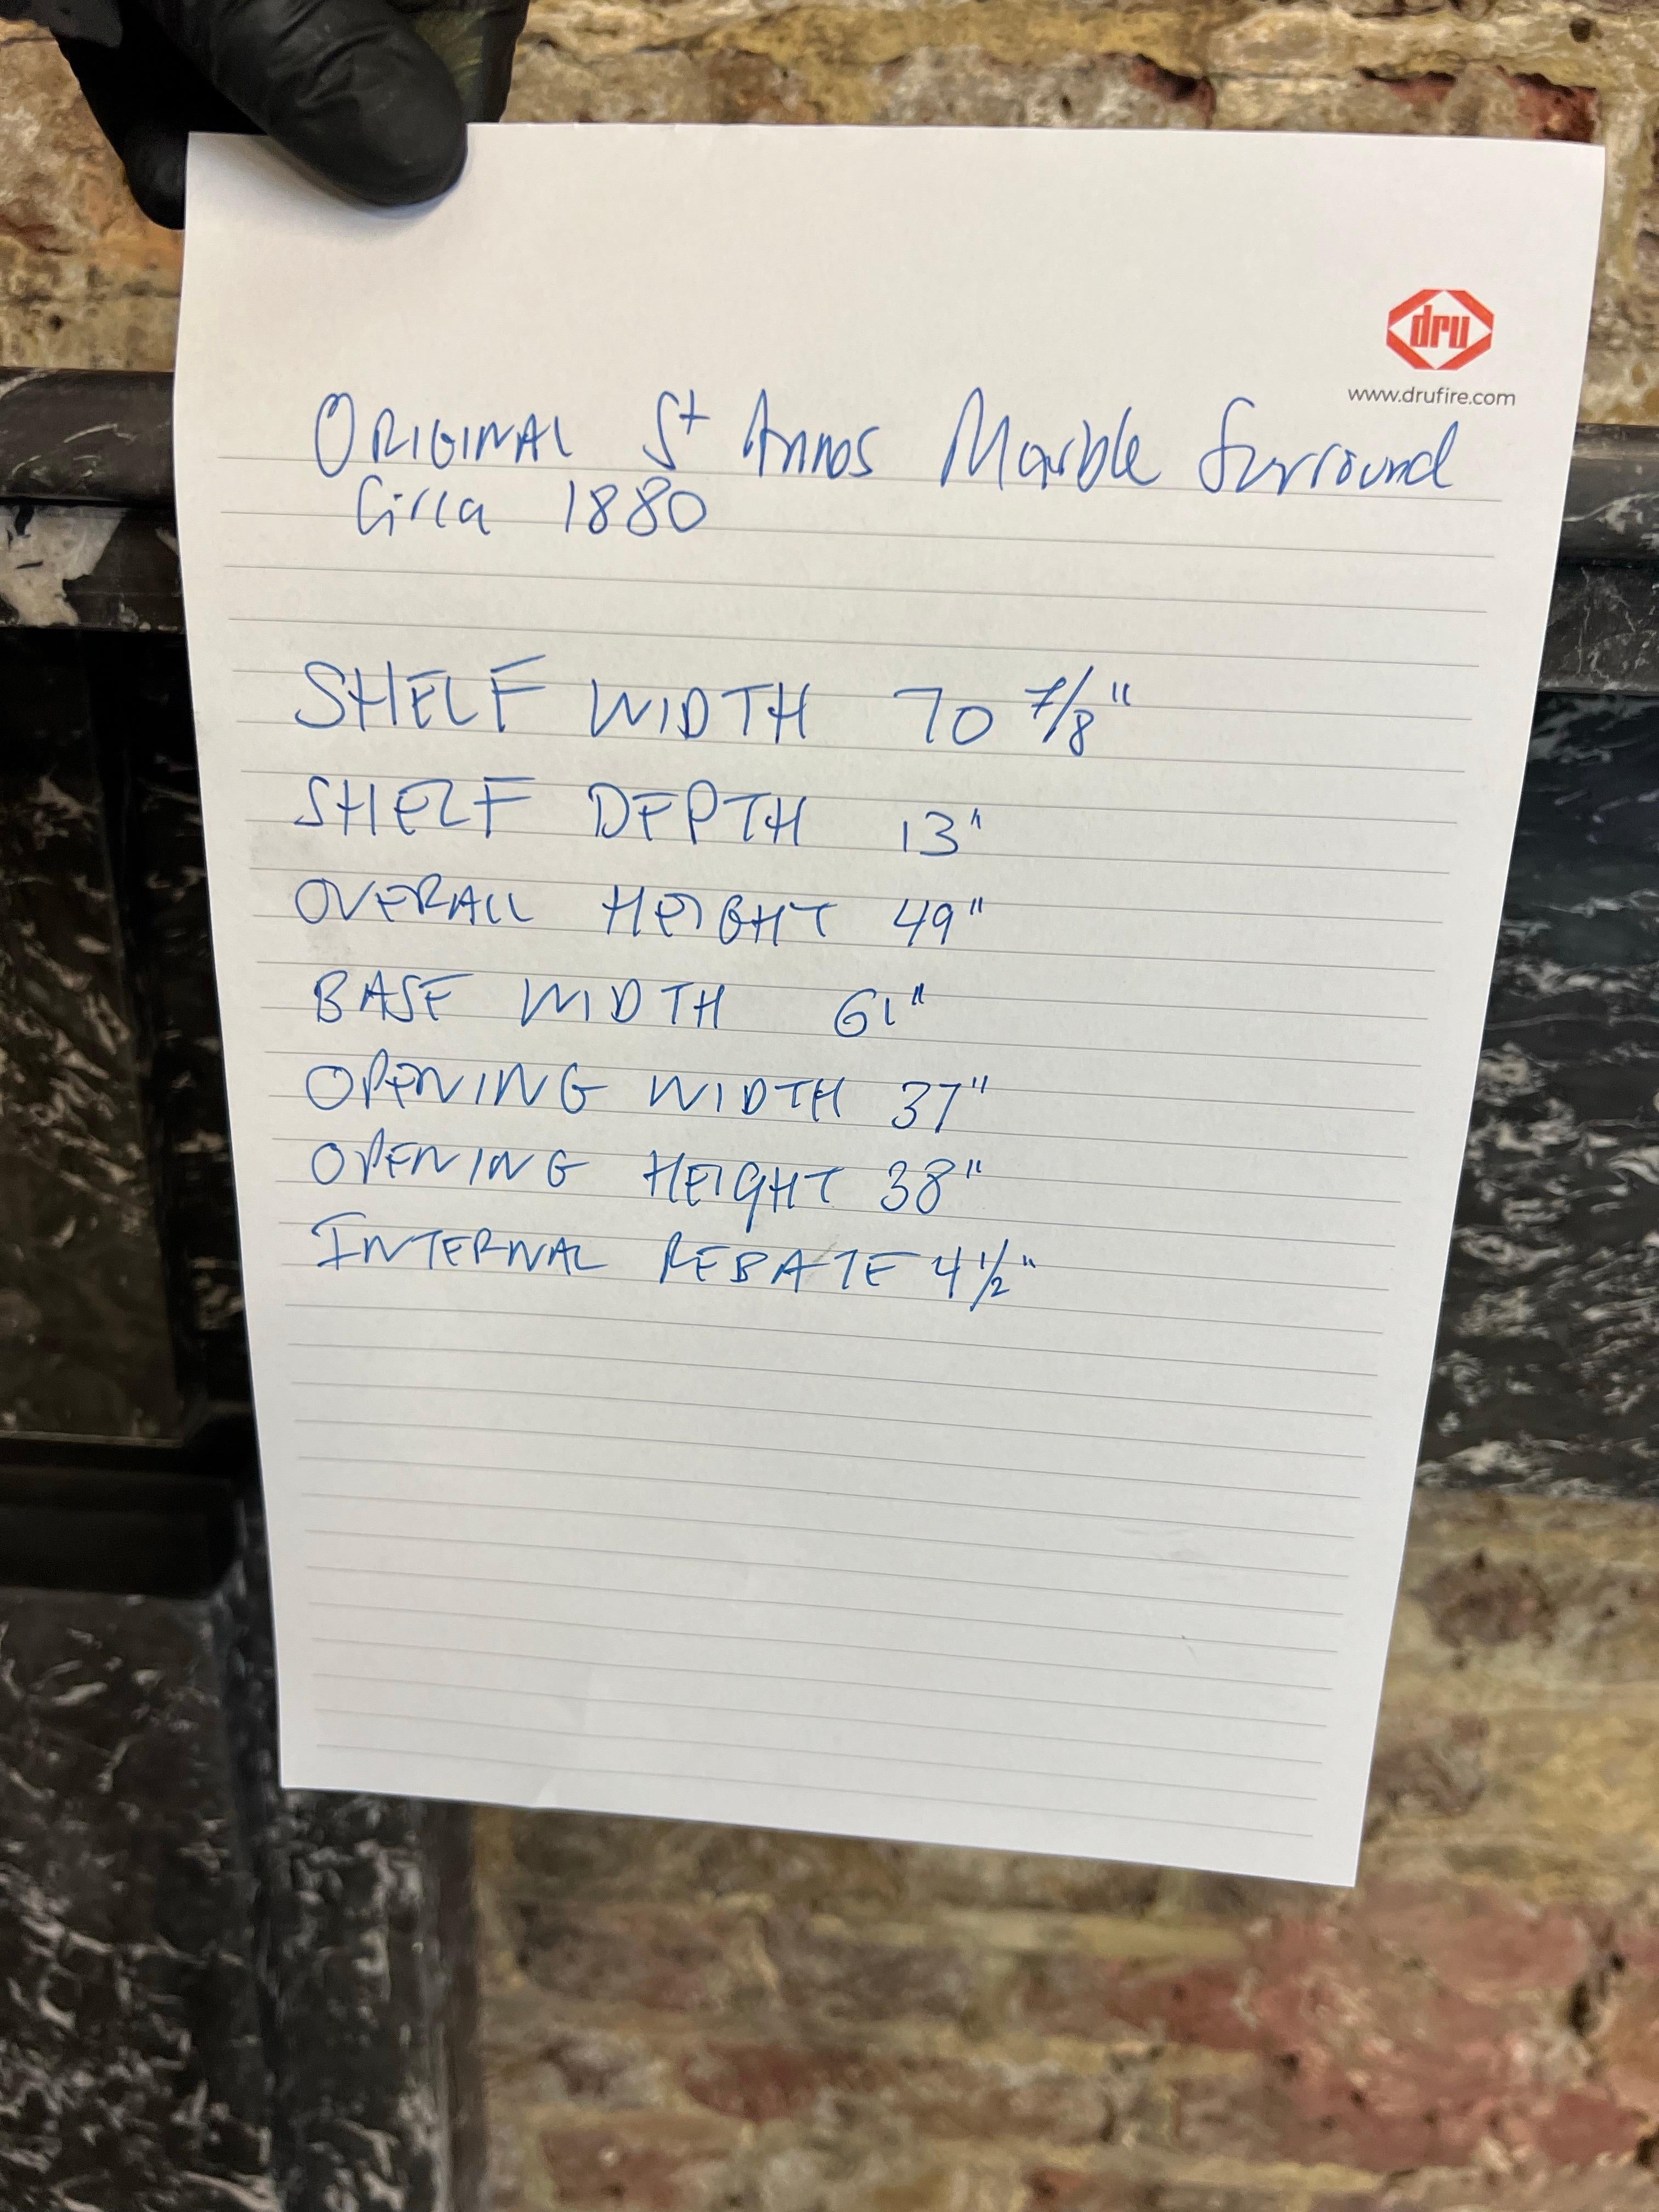 dru
www.drufire.com
ORIGINAL St Annes Marble Surround
Circa 1880
SHELF WIDTH 70 7/8"
SHELF DEPTH 13"
OVERALL HEIGHT 49"
BASE WIDTH 61"
OPENING WIDTH 37"
OPENING HEIGHT 38"
INTERNAL REBATE 4 1/2"